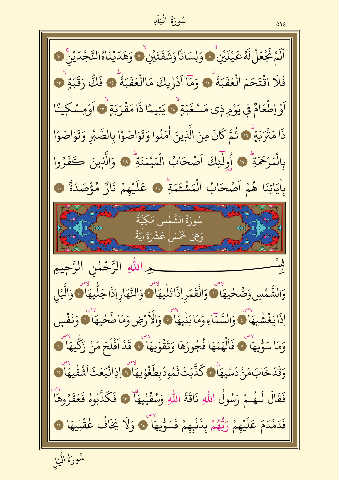 سُورَةُ الْبَلَدِ
٥٩٥
اَلَمْ نَجْعَلْ لَهُ عَيْنَيْنِۙ ﴿٨﴾ وَلِسَانًا وَشَفَتَيْنِۙ ﴿٩﴾ وَهَدَيْنَاهُ النَّجْدَيْنِۚ ﴿١٠﴾
فَلَا اقْتَحَمَ الْعَقَبَةَۘ ﴿١١﴾ وَمَٓا اَدْرٰيكَ مَا الْعَقَبَةُۜ ﴿١٢﴾ فَكُّ رَقَبَةٍۙ ﴿١٣﴾
اَوْ اِطْعَامٌ ف۪ي يَوْمٍ ذ۪ي مَسْغَبَةٍۙ ﴿١٤﴾ يَت۪يمًا ذَا مَقْرَبَةٍۙ ﴿١٥﴾ اَوْ مِسْك۪ينًا
ذَا مَتْرَبَةٍۜ ﴿١٦﴾ ثُمَّ كَانَ مِنَ الَّذ۪ينَ اٰمَنُوا وَتَوَاصَوْا بِالصَّبْرِ وَتَوَاصَوْا
بِالْمَرْحَمَةِۜ ﴿١٧﴾ اُو۬لٰٓئِكَ اَصْحَابُ الْمَيْمَنَةِۜ ﴿١٨﴾ وَالَّذ۪ينَ كَفَرُوا
بِاٰيَاتِنَا هُمْ اَصْحَابُ الْمَشْـَٔمَةِۜ ﴿١٩﴾ عَلَيْهِمْ نَارٌ مُؤْصَدَةٌ ﴿٢٠﴾
سُورَةُ الشَّمْسِ مَكِّيَّةٌ
وَهِيَ خَمْسَ عَشْرَةَ اٰيَةً
بِسْمِ اللّٰهِ الرَّحْمٰنِ الرَّح۪يمِ
وَالشَّمْسِ وَضُحٰيهَاۙ ﴿١﴾ وَالْقَمَرِ اِذَا تَلٰيهَاۙ ﴿٢﴾ وَالنَّهَارِ اِذَا جَلّٰيهَاۙ ﴿٣﴾ وَالَّيْلِ
اِذَا يَغْشٰيهَاۙ ﴿٤﴾ وَالسَّمَٓاءِ وَمَا بَنٰيهَاۙ ﴿٥﴾ وَالْاَرْضِ وَمَا طَحٰيهَاۙ ﴿٦﴾ وَنَفْسٍ
وَمَا سَوّٰيهَاۙ ﴿٧﴾ فَاَلْهَمَهَا فُجُورَهَا وَتَقْوٰيهَاۙ ﴿٨﴾ قَدْ اَفْلَحَ مَنْ زَكّٰيهَاۙ ﴿٩﴾
وَقَدْ خَابَ مَنْ دَسّٰيهَاۜ ﴿١٠﴾ كَذَّبَتْ ثَمُودُ بِطَغْوٰيهَاۙ ﴿١١﴾ اِذِ انْبَعَثَ اَشْقٰيهَاۙ ﴿١٢﴾
فَقَالَ لَهُمْ رَسُولُ اللّٰهِ نَاقَةَ اللّٰهِ وَسُقْيٰيهَاۜ ﴿١٣﴾ فَكَذَّبُوهُ فَعَقَرُوهَاۙ
فَدَمْدَمَ عَلَيْهِمْ رَبُّهُمْ بِذَنْبِهِمْ فَسَوّٰيهَاۙ ﴿١٤﴾ وَلَا يَخَافُ عُقْبٰيهَا ﴿١٥﴾